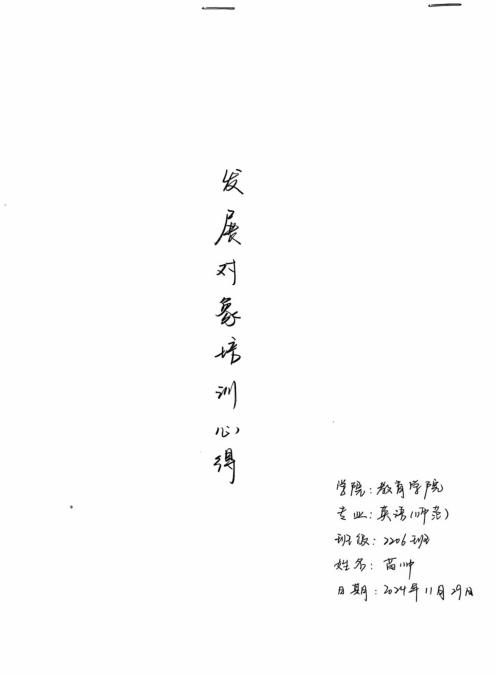 发展对象培训心得
学院：教育学院
专业：英语（师范）
班级：2206班
姓名：苗帅
日期：2024年11月29日